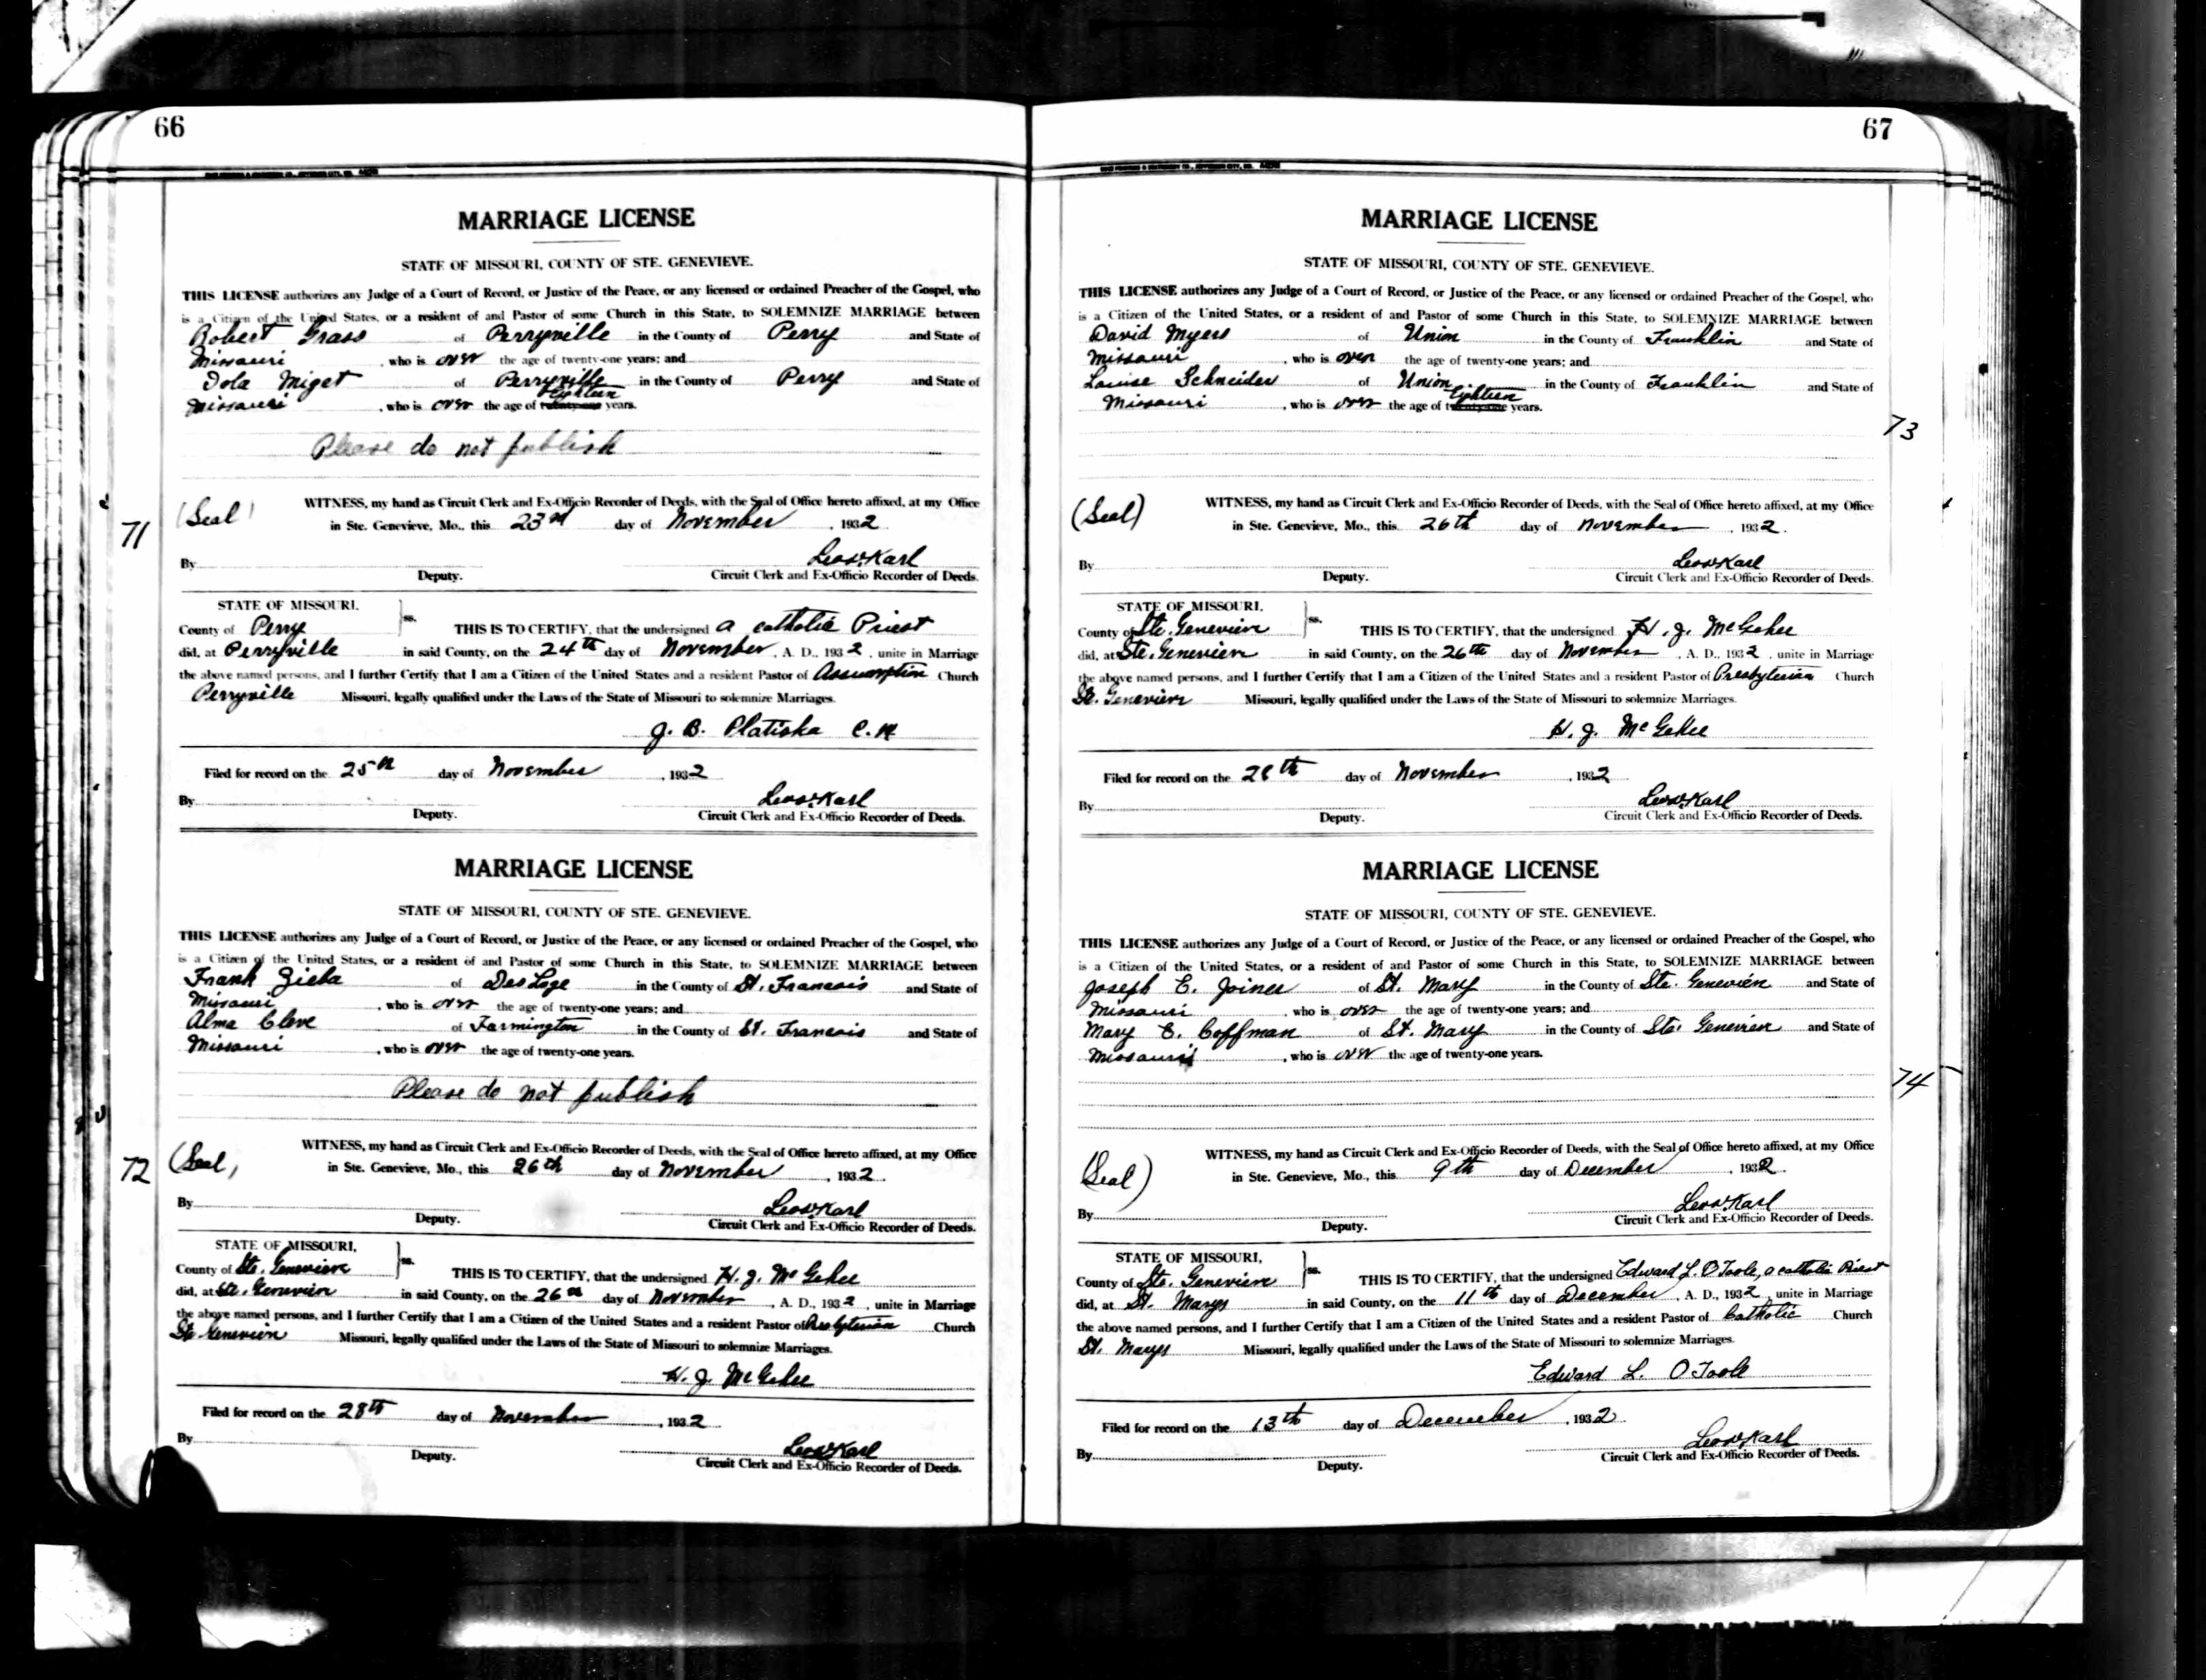 66
MARRIAGE LICENSE
STATE OF MISSOURI, COUNTY OF STE. GENEVIEVE.
THIS LICENSE authorizes any Judge of a Court of Record, or Justice of the Peace, or any licensed or ordained Preacher of the Gospel, who
is a Citizen of the United States, or a resident of and Pastor of some Church in this State, to SOLEMNIZE MARRIAGE between
Robert Grass of Perryville in the County of Perry and State of
Missouri, who is over the age of twenty-one years; and
Iola Miget of Perryville in the County of Perry and State of
Missouri, who is over the age of twenty-one Eighteen years.
Please do not publish
71
(Seal) WITNESS, my hand as Circuit Clerk and Ex-Officio Recorder of Deeds, with the Seal of Office hereto affixed, at my Office
in Ste. Genevieve, Mo., this 23rd day of November, 1932
Leo W. Karl
By Deputy. Circuit Clerk and Ex-Officio Recorder of Deeds.
STATE OF MISSOURI,
County of Perry ss. THIS IS TO CERTIFY, that the undersigned a catholic Priest
did, at Perryville in said County, on the 24th day of November, A. D., 1932, unite in Marriage
the above named persons, and I further Certify that I am a Citizen of the United States and a resident Pastor of Assumption Church
Perryville Missouri, legally qualified under the Laws of the State of Missouri to solemnize Marriages.
J. B. Platisha C.M
Filed for record on the 25th day of November, 1932
Leo W. Karl
By Deputy. Circuit Clerk and Ex-Officio Recorder of Deeds.
MARRIAGE LICENSE
STATE OF MISSOURI, COUNTY OF STE. GENEVIEVE.
THIS LICENSE authorizes any Judge of a Court of Record, or Justice of the Peace, or any licensed or ordained Preacher of the Gospel, who
is a Citizen of the United States, or a resident of and Pastor of some Church in this State, to SOLEMNIZE MARRIAGE between
Frank Zieba of DesLoge in the County of St. Francois and State of
Missouri, who is over the age of twenty-one years; and
Alma Cleve of Farmington in the County of St. Francois and State of
Missouri, who is over the age of twenty-one years.
Please do not publish
72
(Seal) WITNESS, my hand as Circuit Clerk and Ex-Officio Recorder of Deeds, with the Seal of Office hereto affixed, at my Office
in Ste. Genevieve, Mo., this 26th day of November, 1932.
Leo W. Karl
By Deputy. Circuit Clerk and Ex-Officio Recorder of Deeds.
STATE OF MISSOURI,
County of Ste. Genevieve ss. THIS IS TO CERTIFY, that the undersigned H. J. McGehee
did, at Ste. Genevieve in said County, on the 26th day of November, A. D., 1932, unite in Marriage
the above named persons, and I further Certify that I am a Citizen of the United States and a resident Pastor of Presbyterian Church
Ste Genevieve Missouri, legally qualified under the Laws of the State of Missouri to solemnize Marriages.
H. J. McGehee
Filed for record on the 28th day of November, 1932
Leo W. Karl
By Deputy. Circuit Clerk and Ex-Officio Recorder of Deeds.
67
MARRIAGE LICENSE
STATE OF MISSOURI, COUNTY OF STE. GENEVIEVE.
THIS LICENSE authorizes any Judge of a Court of Record, or Justice of the Peace, or any licensed or ordained Preacher of the Gospel, who
is a Citizen of the United States, or a resident of and Pastor of some Church in this State, to SOLEMNIZE MARRIAGE between
David Myers of Union in the County of Franklin and State of
Missouri, who is over the age of twenty-one years; and
Louise Schneider of Union in the County of Franklin and State of
Missouri, who is over the age of twenty-one Eighteen years.
73
(Seal) WITNESS, my hand as Circuit Clerk and Ex-Officio Recorder of Deeds, with the Seal of Office hereto affixed, at my Office
in Ste. Genevieve, Mo., this 26th day of November, 1932.
Leo W. Karl
By Deputy. Circuit Clerk and Ex-Officio Recorder of Deeds.
STATE OF MISSOURI,
County of Ste. Genevieve ss. THIS IS TO CERTIFY, that the undersigned H. J. McGehee
did, at Ste. Genevieve in said County, on the 26th day of November, A. D., 1932, unite in Marriage
the above named persons, and I further Certify that I am a Citizen of the United States and a resident Pastor of Presbyterian Church
Ste. Genevieve Missouri, legally qualified under the Laws of the State of Missouri to solemnize Marriages.
H. J. McGehee
Filed for record on the 28th day of November, 1932
Leo W. Karl
By Deputy. Circuit Clerk and Ex-Officio Recorder of Deeds.
MARRIAGE LICENSE
STATE OF MISSOURI, COUNTY OF STE. GENEVIEVE.
THIS LICENSE authorizes any Judge of a Court of Record, or Justice of the Peace, or any licensed or ordained Preacher of the Gospel, who
is a Citizen of the United States, or a resident of and Pastor of some Church in this State, to SOLEMNIZE MARRIAGE between
Joseph C. Joiner of St. Mary in the County of Ste. Genevieve and State of
Missouri, who is over the age of twenty-one years; and
Mary C. Coffman of St. Mary in the County of Ste. Genevieve and State of
Missouri, who is over the age of twenty-one years.
74
(Seal) WITNESS, my hand as Circuit Clerk and Ex-Officio Recorder of Deeds, with the Seal of Office hereto affixed, at my Office
in Ste. Genevieve, Mo., this 9th day of December, 1932.
Leo W. Karl
By Deputy. Circuit Clerk and Ex-Officio Recorder of Deeds.
STATE OF MISSOURI,
County of Ste. Genevieve ss. THIS IS TO CERTIFY, that the undersigned Edward L. O'Toole, a catholic Priest
did, at St. Marys in said County, on the 11th day of December, A. D., 1932, unite in Marriage
the above named persons, and I further Certify that I am a Citizen of the United States and a resident Pastor of Catholic Church
St. Marys Missouri, legally qualified under the Laws of the State of Missouri to solemnize Marriages.
Edward L. O'Toole
Filed for record on the 13th day of December, 1932.
Leo W. Karl
By Deputy. Circuit Clerk and Ex-Officio Recorder of Deeds.